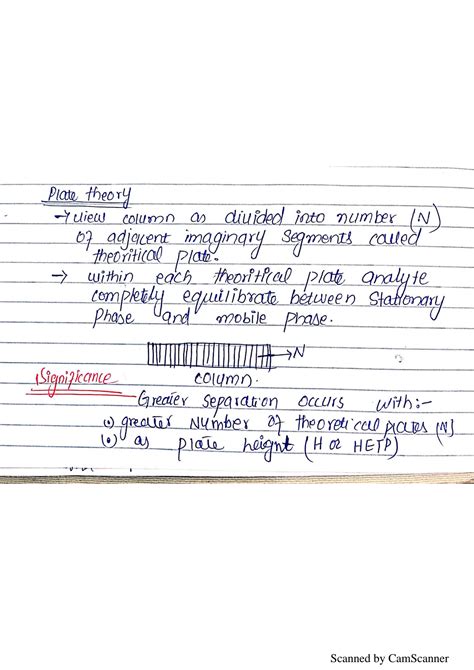 Plate theory
→ view column as divided into number (N)
of adjacent imaginary segments called
theoritical plate.
→ within each theoritical plate analyte
completely equilibrate between Stationary
Phase and mobile phase.
→N
column.
Significance
Greater separation occurs with:-
(•) greater number of theoretical plates (N)
(•) as plate height (H or HETP)
Scanned by CamScanner